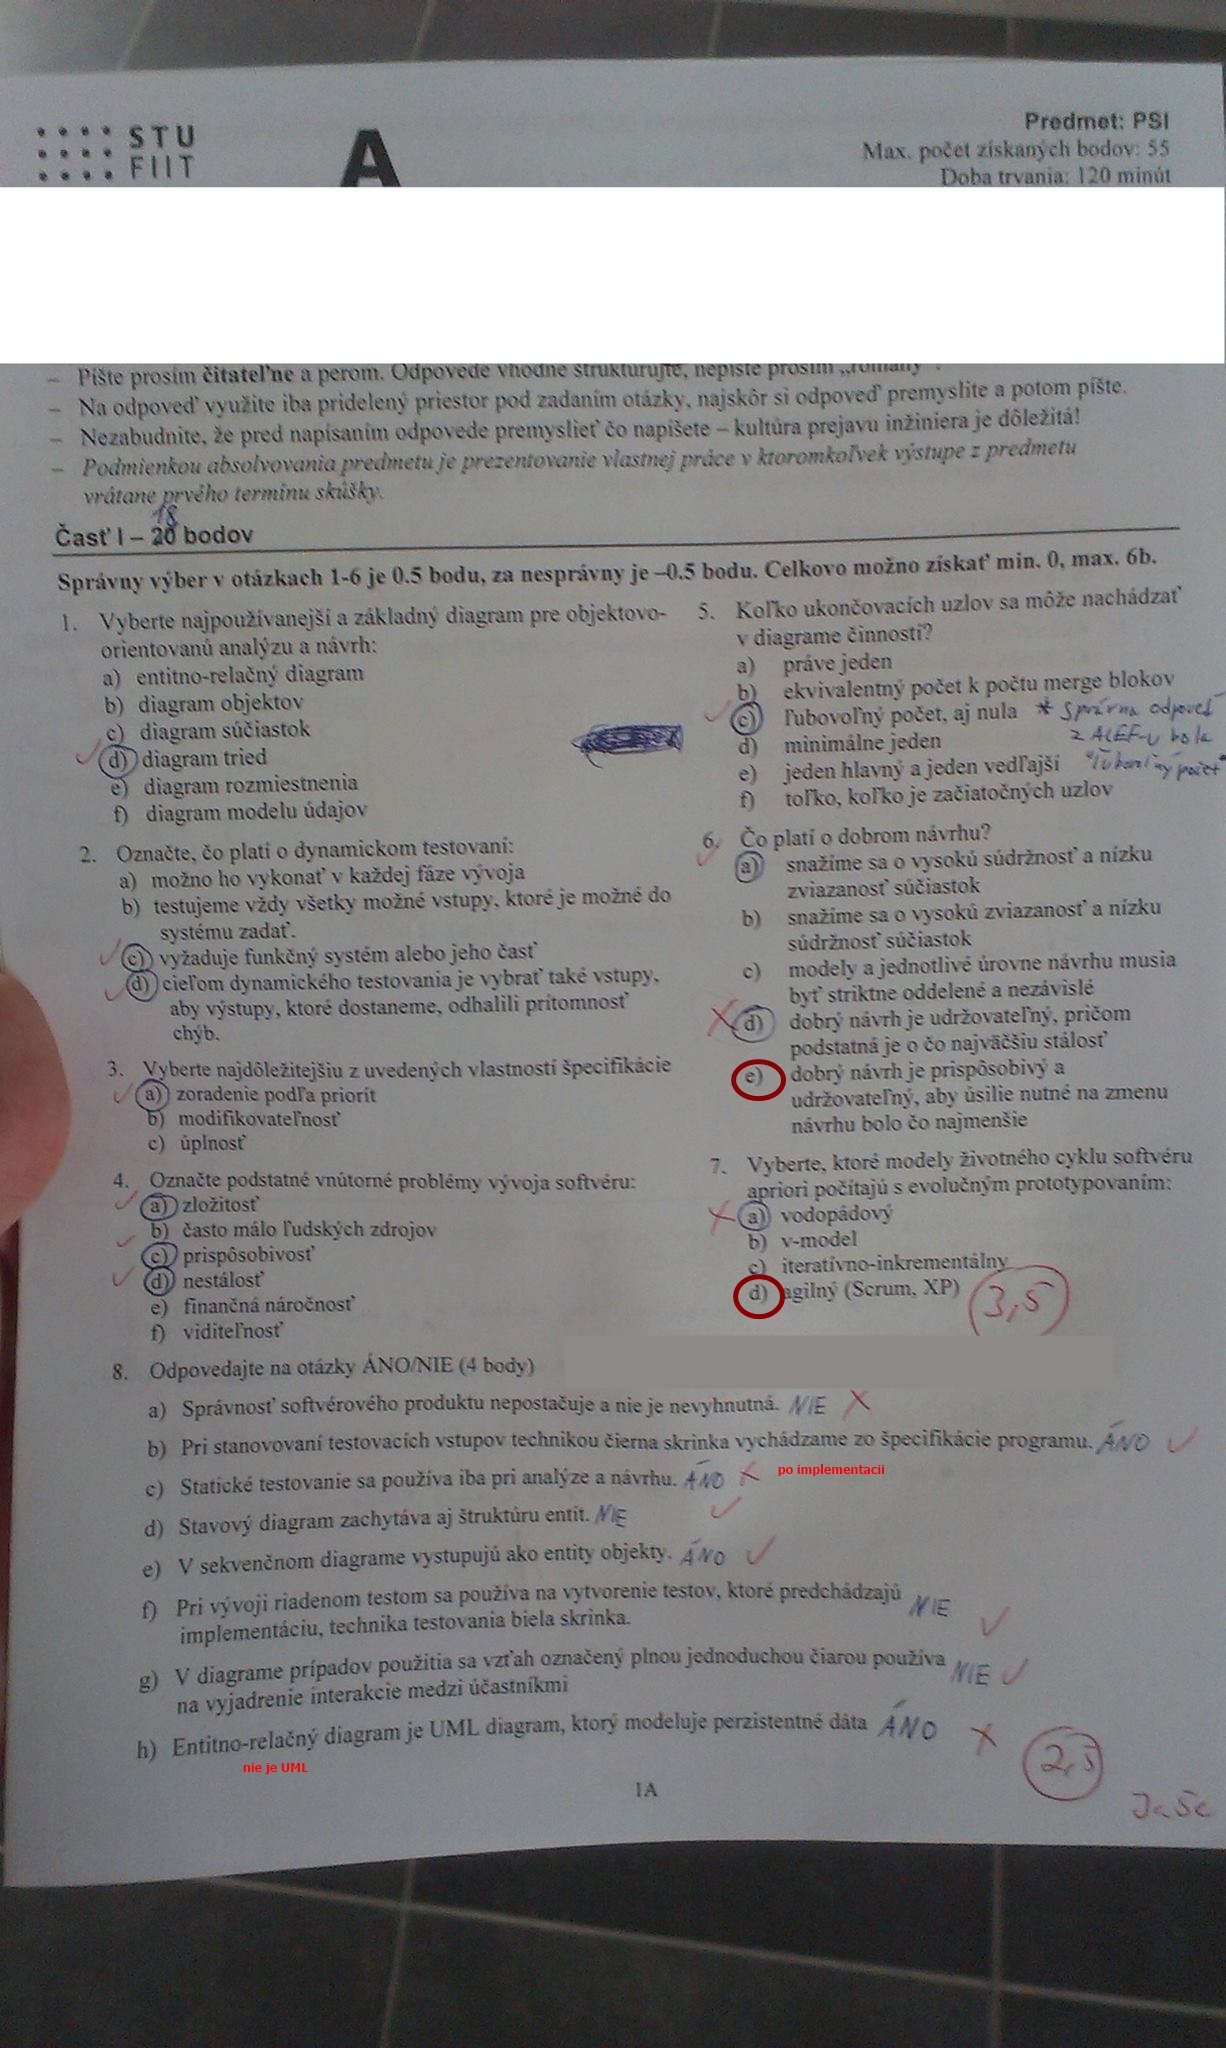 STU
FIIT
A
Predmet: PSI
Max. počet získaných bodov: 55
Doba trvania: 120 minút
– Píšte prosím čitateľne a perom. Odpovede vhodne štrukturujte, nepíšte prosím „romány“.
– Na odpoveď využite iba pridelený priestor pod zadaním otázky, najskôr si odpoveď premyslite a potom píšte.
– Nezabudnite, že pred napísaním odpovede premyslieť čo napíšete – kultúra prejavu inžiniera je dôležitá!
– Podmienkou absolvovania predmetu je prezentovanie vlastnej práce v ktoromkoľvek výstupe z predmetu
vrátane prvého termínu skúšky.
18
Časť I – 20 bodov
Správny výber v otázkach 1-6 je 0.5 bodu, za nesprávny je –0.5 bodu. Celkovo možno získať min. 0, max. 6b.
1. Vyberte najpoužívanejší a základný diagram pre objektovo-
orientovanú analýzu a návrh:
a) entitno-relačný diagram
b) diagram objektov
c) diagram súčiastok
d) diagram tried
e) diagram rozmiestnenia
f) diagram modelu údajov
2. Označte, čo platí o dynamickom testovaní:
a) možno ho vykonať v každej fáze vývoja
b) testujeme vždy všetky možné vstupy, ktoré je možné do
systému zadať.
c) vyžaduje funkčný systém alebo jeho časť
d) cieľom dynamického testovania je vybrať také vstupy,
aby výstupy, ktoré dostaneme, odhalili prítomnosť
chýb.
3. Vyberte najdôležitejšiu z uvedených vlastností špecifikácie
a) zoradenie podľa priorít
b) modifikovateľnosť
c) úplnosť
4. Označte podstatné vnútorné problémy vývoja softvéru:
a) zložitosť
b) často málo ľudských zdrojov
c) prispôsobivosť
d) nestálosť
e) finančná náročnosť
f) viditeľnosť
5. Koľko ukončovacích uzlov sa môže nachádzať
v diagrame činností?
a) práve jeden
b) ekvivalentný počet k počtu merge blokov
c) ľubovoľný počet, aj nula * správna odpoveď
z ALEF-u bola
d) minimálne jeden
e) jeden hlavný a jeden vedľajší
f) toľko, koľko je začiatočných uzlov
6. Čo platí o dobrom návrhu?
a) snažíme sa o vysokú súdržnosť a nízku
zviazanosť súčiastok
b) snažíme sa o vysokú zviazanosť a nízku
súdržnosť súčiastok
c) modely a jednotlivé úrovne návrhu musia
byť striktne oddelené a nezávislé
d) dobrý návrh je udržovateľný, pričom
podstatná je o čo najväčšiu stálosť
e) dobrý návrh je prispôsobivý a
udržovateľný, aby úsilie nutné na zmenu
návrhu bolo čo najmenšie
7. Vyberte, ktoré modely životného cyklu softvéru
apriori počítajú s evolučným prototypovaním:
a) vodopádový
b) v-model
c) iteratívno-inkrementálny
d) agilný (Scrum, XP)
3,5
8. Odpovedajte na otázky ÁNO/NIE (4 body)
a) Správnosť softvérového produktu nepostačuje a nie je nevyhnutná. NIE
b) Pri stanovovaní testovacích vstupov technikou čierna skrinka vychádzame zo špecifikácie programu. ÁNO
c) Statické testovanie sa používa iba pri analýze a návrhu. ÁNO po implementacii
d) Stavový diagram zachytáva aj štruktúru entít. NIE
e) V sekvenčnom diagrame vystupujú ako entity objekty. ÁNO
f) Pri vývoji riadenom testom sa používa na vytvorenie testov, ktoré predchádzajú NIE
implementáciu, technika testovania biela skrinka.
g) V diagrame prípadov použitia sa vzťah označený plnou jednoduchou čiarou používa NIE
na vyjadrenie interakcie medzi účastníkmi
h) Entitno-relačný diagram je UML diagram, ktorý modeluje perzistentné dáta ÁNO
nie je UML
2,5
1A